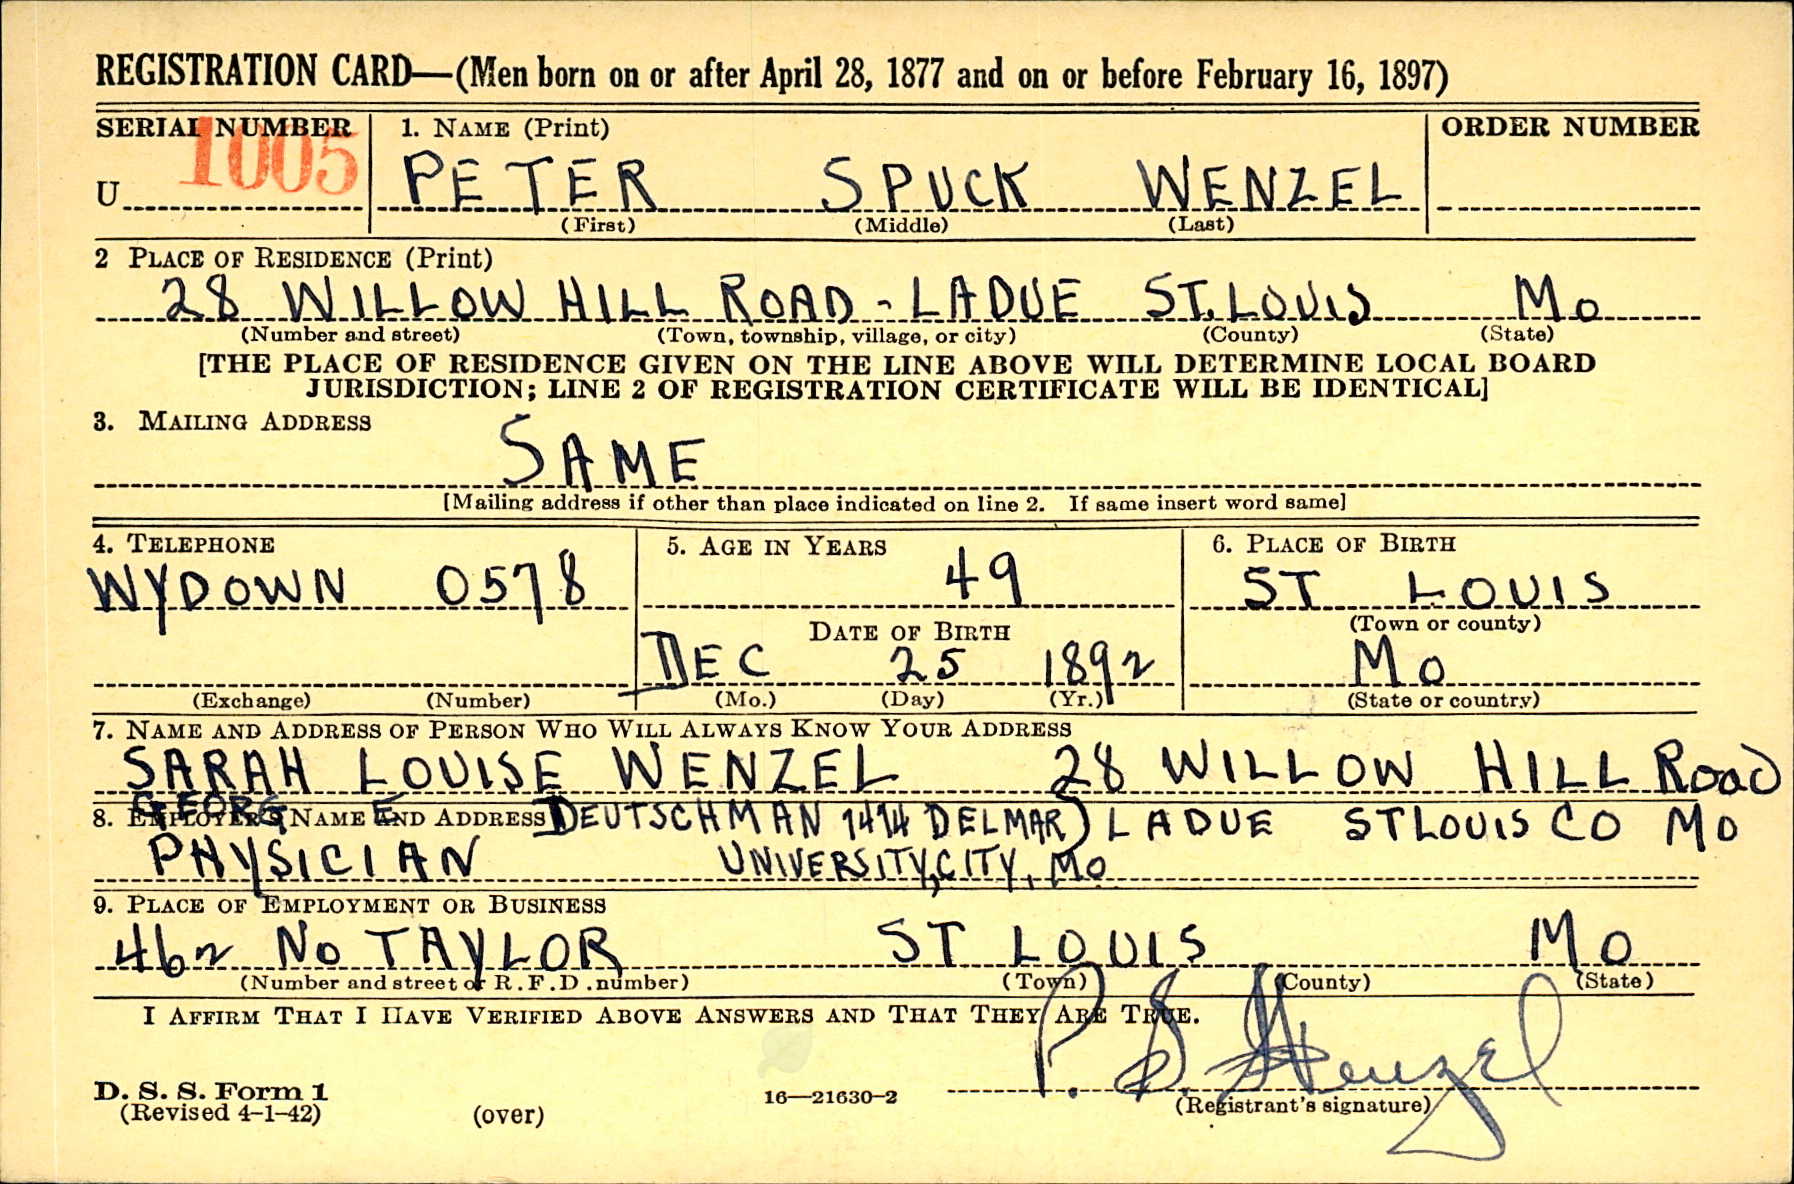 REGISTRATION CARD—(Men born on or after April 28, 1877 and on or before February 16, 1897)
SERIAL NUMBER 1. NAME (Print) ORDER NUMBER
U 1005 PETER SPUCK WENZEL
(First) (Middle) (Last)
2 PLACE OF RESIDENCE (Print)
28 WILLOW HILL ROAD - LADUE ST. LOUIS MO
(Number and street) (Town, township, village, or city) (County) (State)
[THE PLACE OF RESIDENCE GIVEN ON THE LINE ABOVE WILL DETERMINE LOCAL BOARD
JURISDICTION; LINE 2 OF REGISTRATION CERTIFICATE WILL BE IDENTICAL]
3. MAILING ADDRESS
SAME
[Mailing address if other than place indicated on line 2. If same insert word same]
4. TELEPHONE 5. AGE IN YEARS 6. PLACE OF BIRTH
WYDOWN 0578 49 ST LOUIS
DATE OF BIRTH (Town or county)
DEC 25 1892 MO
(Exchange) (Number) (Mo.) (Day) (Yr.) (State or country)
7. NAME AND ADDRESS OF PERSON WHO WILL ALWAYS KNOW YOUR ADDRESS
SARAH LOUISE WENZEL 28 WILLOW HILL ROAD
GEORG E DEUTSCHMAN 7474 DELMAR) LADUE ST LOUIS CO MO
8. EMPLOYER'S NAME AND ADDRESS
PHYSICIAN UNIVERSITY, CITY, MO
9. PLACE OF EMPLOYMENT OR BUSINESS
462 NO TAYLOR ST LOUIS MO
(Number and street or R. F. D. number) (Town) (County) (State)
I AFFIRM THAT I HAVE VERIFIED ABOVE ANSWERS AND THAT THEY ARE TRUE.
P. S. Wenzel
D. S. S. Form 1
(Revised 4-1-42) (over) 16—21630-2 (Registrant's signature)